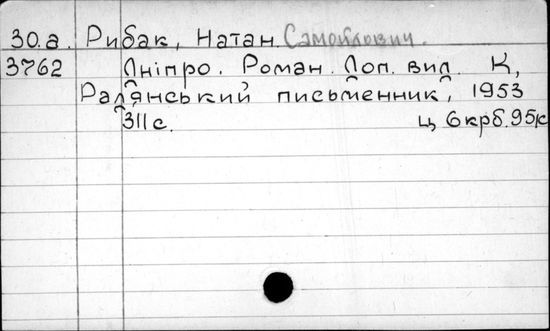 30.а. Рибак, Натан Самойлович.
3762 Дніпро. Роман. Доп. вид. К,
Радянський письменник, 1953
311 с. ц 6 крб. 95 к